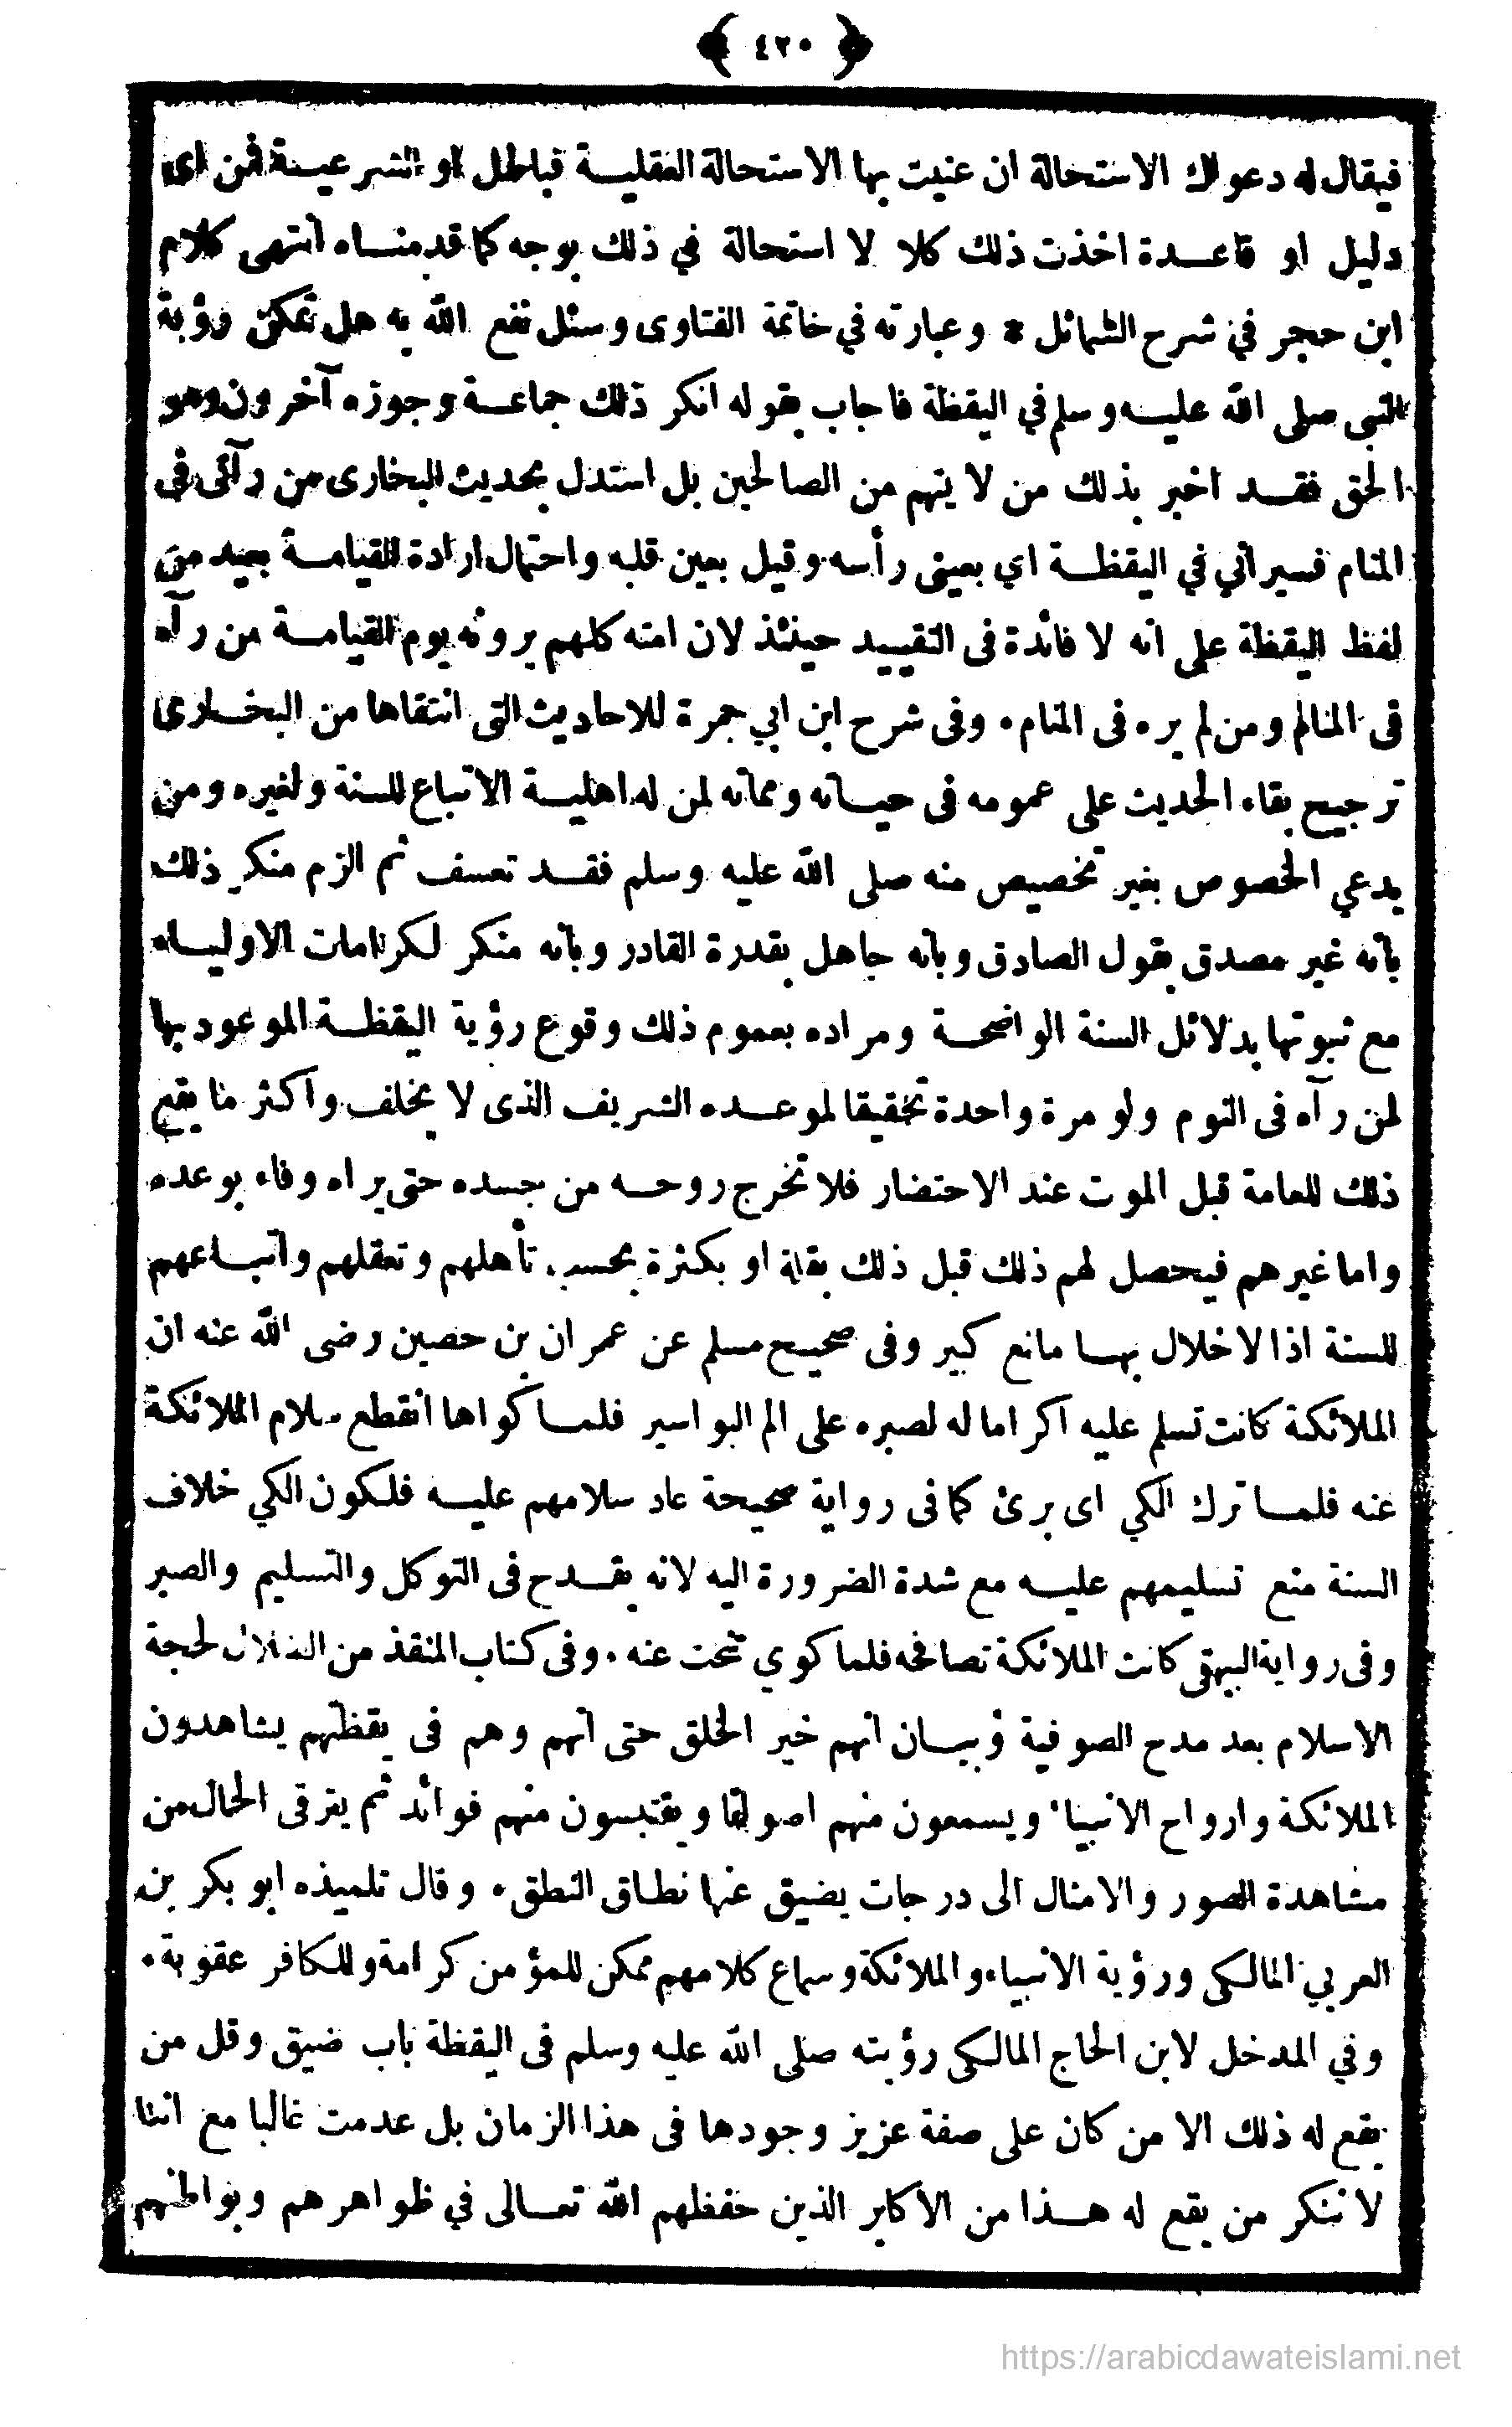 ﴿ ٤٢٠ ﴾
فيقال له دعواك الاستحالة ان عنيت بها الاستحالة العقلية فباطل او الشرعية فمن اى
دليل او قاعدة اخذت ذلك كلا لا استحالة في ذلك بوجه كما قدمناه انتهى كلام
ابن حجر في شرح الشمائل * وعبارته في خاتمة الفتاوى وسئل نفع الله به هل تمكن رؤية
النبى صلى الله عليه وسلم في اليقظة فاجاب بقوله انكر ذلك جماعة وجوزه آخرون وهو
الحق فقد اخبر بذلك من لا يتهم من الصالحين بل استدل بحديث البخارى من رآنى فى
المنام فسيراني في اليقظة اي بعينى رأسه وقيل بعين قلبه واحتمال ارادة القيامة بعيد من
لفظ اليقظة على انه لا فائدة فى التقييد حينئذ لان امته كلهم يرونه يوم القيامة من رآه
فى المنام ومن لم يره فى المنام ٠ وفى شرح ابن ابي جمرة للاحاديث التى انتقاها من البخارى
ترجيح بقاء الحديث على عمومه فى حياته ومماته لمن له اهلية الاتباع للسنة ولغيره ومن
يدعي الخصوص بغير تخصيص منه صلى الله عليه وسلم فقد تعسف ثم الزم منكر ذلك
بانه غير مصدق بقول الصادق وبانه جاهل بقدرة القادر وبانه منكر لكرامات الاولياء
مع ثبوتها بدلائل السنة الواضحة ومراده بعموم ذلك وقوع رؤية اليقظة الموعود بها
لمن رآه فى النوم ولو مرة واحدة تحقيقا لموعده الشريف الذى لا يخلف واكثر ما يقع
ذلك للعامة قبل الموت عند الاحتضار فلا تخرج روحه من جسده حتى يراه وفاء بوعده
واما غيرهم فيحصل لهم ذلك قبل ذلك بقلة او بكثرة بحسب تأهلهم وتعقلهم واتباعهم
للسنة اذ الاخلال بها مانع كبير وفى صحيح مسلم عن عمران بن حصين رضى الله عنه ان
الملائكة كانت تسلم عليه اكراما له لصبره على الم البواسير فلما كواها انقطع سلام الملائكة
عنه فلما ترك الكي اى برئ كما فى رواية صحيحة عاد سلامهم عليه فلكون الكي خلاف
السنة منع تسليمهم عليه مع شدة الضرورة اليه لانه يقدح فى التوكل والتسليم والصبر
وفى رواية البيهقى كانت الملائكة تصافحه فلما كوي تنحت عنه ٠ وفى كتاب المنقذ من الضلال لحجة
الاسلام بعد مدح الصوفية وبيان انهم خير الخلق حتى انهم وهم فى يقظتهم يشاهدون
الملائكة وارواح الانبياء ويسمعون منهم اصواتا ويقتبسون منهم فوائد ثم يترقى الحال من
مشاهدة الصور والامثال الى درجات يضيق عنها نطاق النطق ٠ وقال تلميذه ابو بكر بن
العربي المالكى ورؤية الانبياء والملائكة وسماع كلامهم ممكن للمؤمن كرامة وللكافر عقوبة ٠
وفي المدخل لابن الحاج المالكى رؤيته صلى الله عليه وسلم فى اليقظة باب ضيق وقل من
يقع له ذلك الا من كان على صفة عزيز وجودها فى هذا الزمان بل عدمت غالبا مع اننا
لا ننكر من يقع له هذا من الاكابر الذين حفظهم الله تعالى في ظواهرهم وبواطنهم
https://arabicdawateislami.net